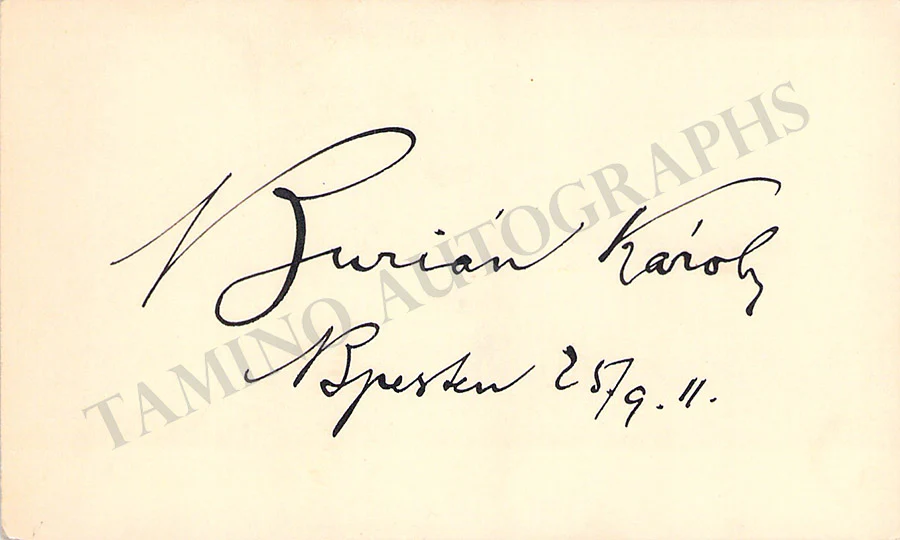 Burián Károly
Bpesten 25/9. 11.
TAMINO AUTOGRAPHS